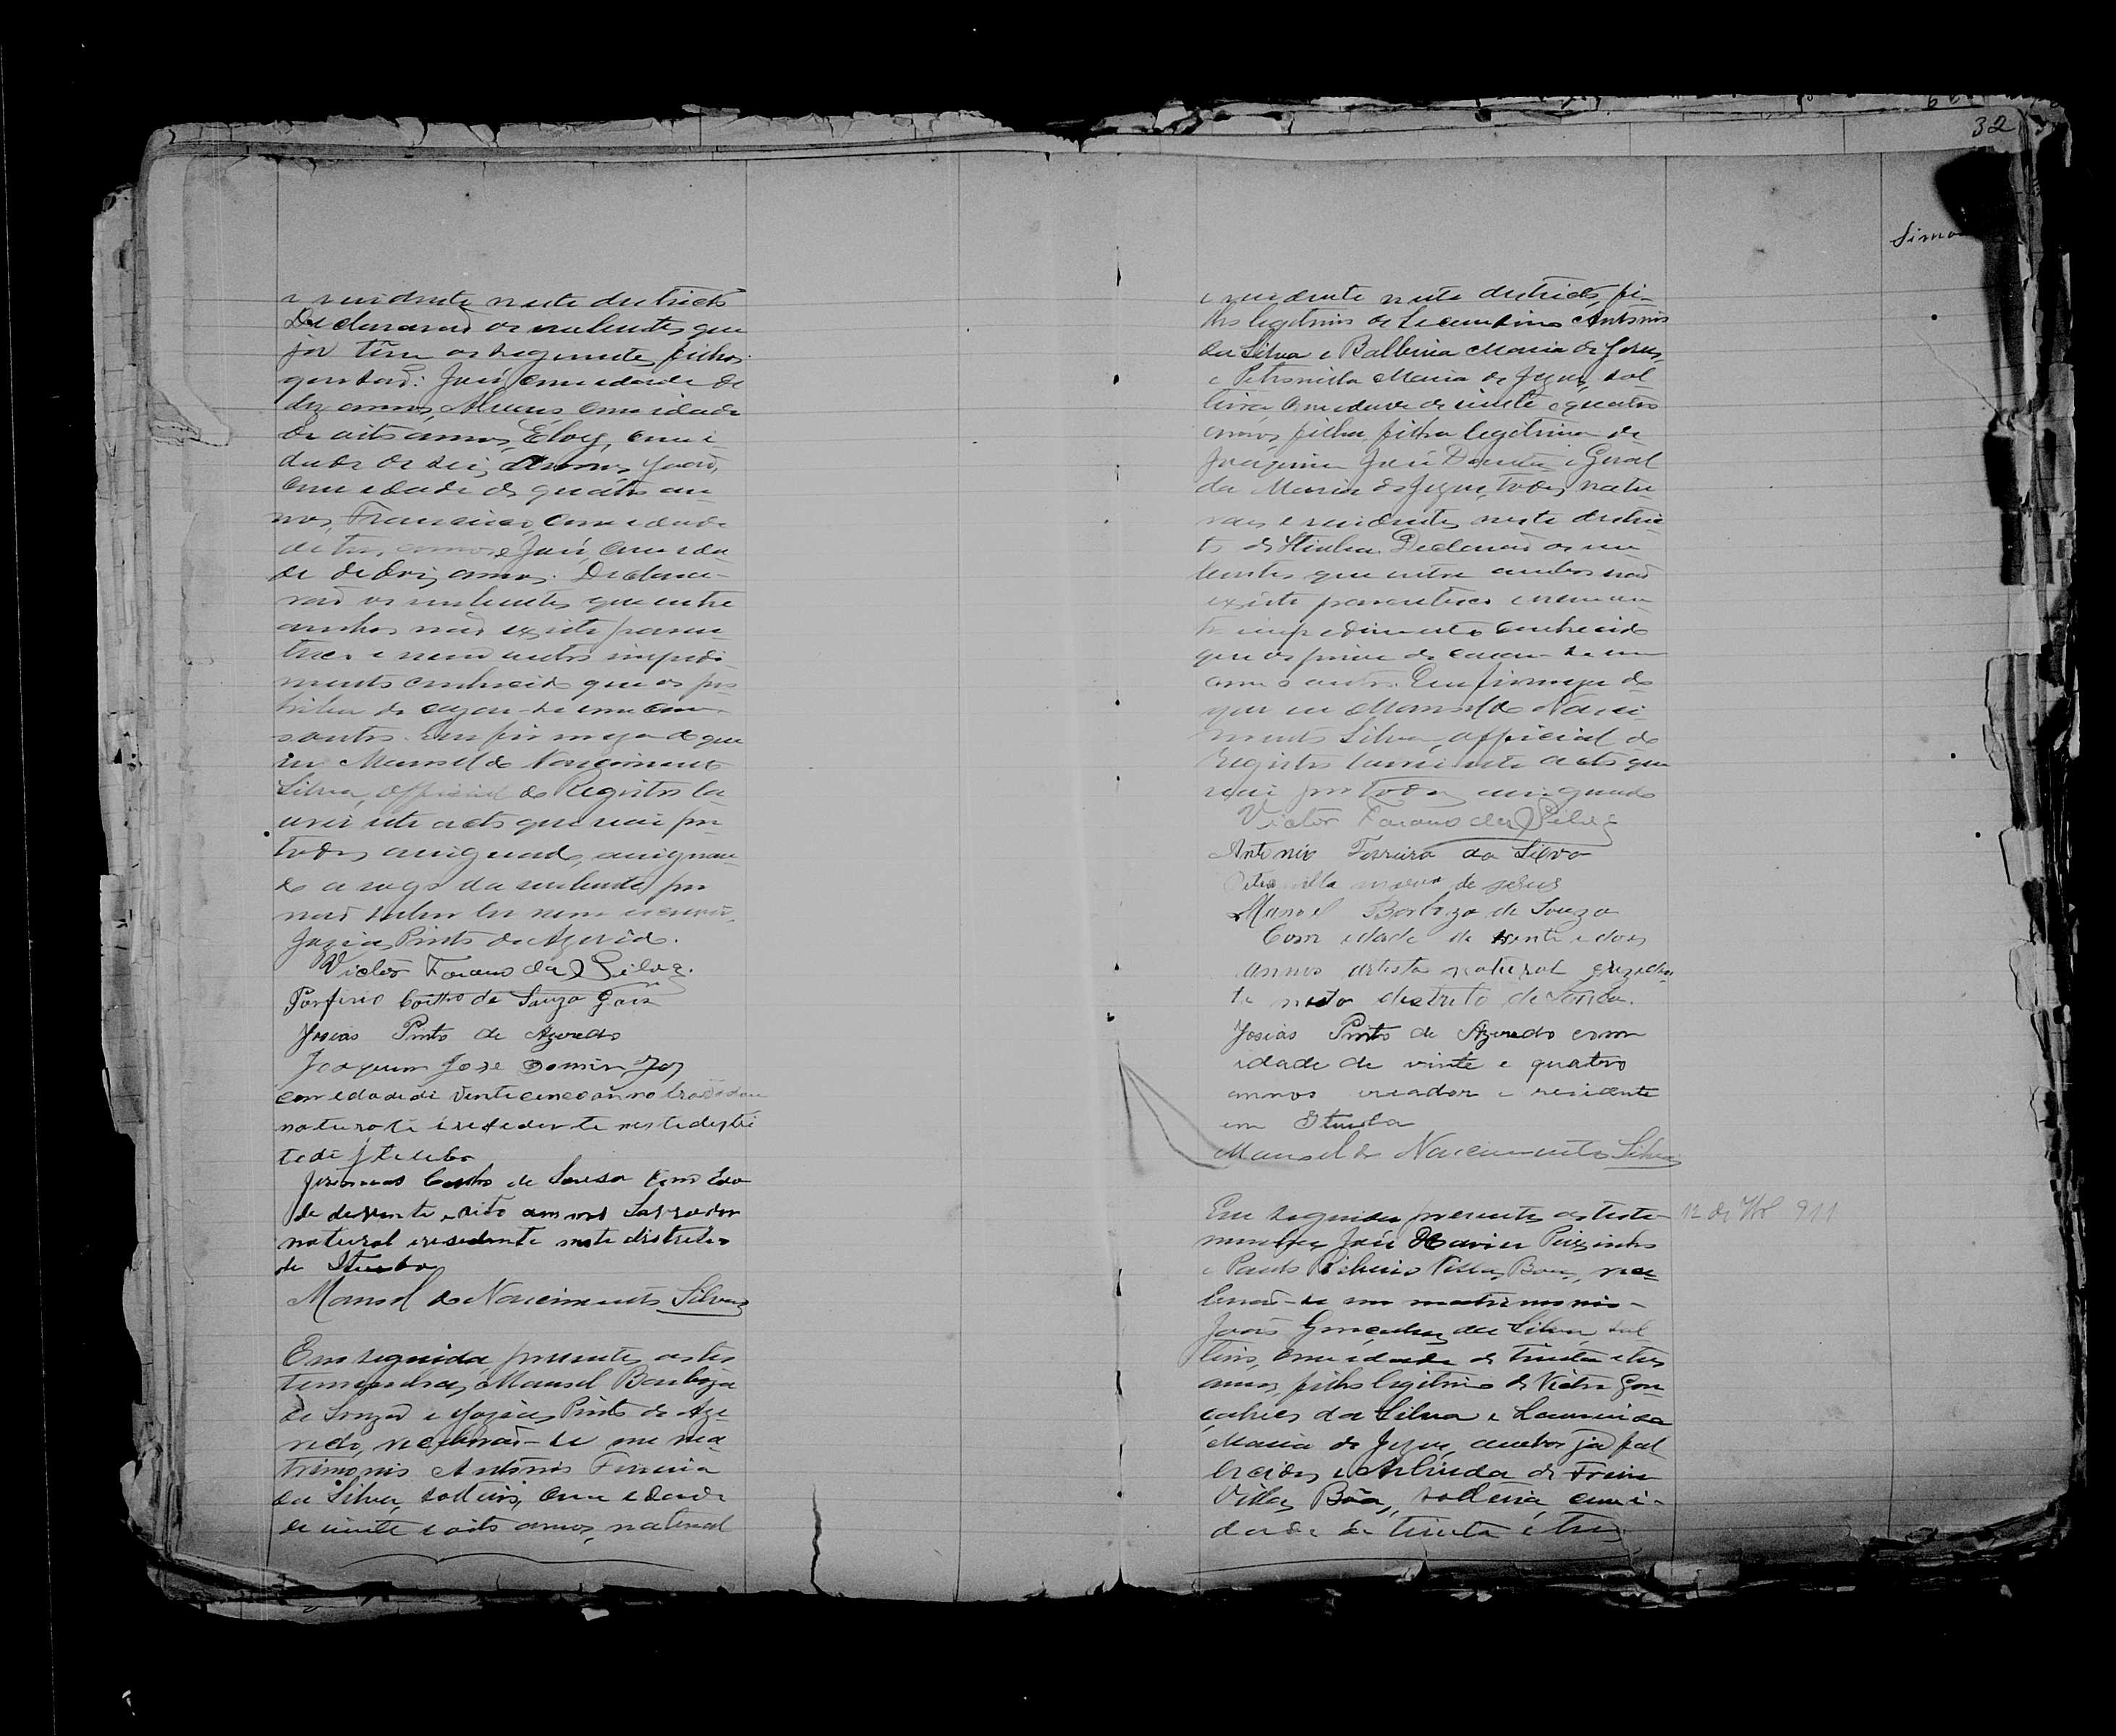 e residente neste districto
Declararão os nubentes que
já têm os seguintes filhos
que são: José, com edade de
dez annos, com idade
de oito annos, Eloy, com i
dade de seis annos, João,
com edade de quatro an
nos, Francisco, com edade
de tres annos e José, com eda
de de dois annos. Declara-
rão os nubentes que entre
ambos não existe paren
tesco e nem outro impedi
mento conhecido que os
de cazar-se um com
o outro. Em firmeza do que
eu Manoel do Nascimento
Silva, official do Registro la
vrei este acto que vai por
todos assignado, assignan
do a rogo da nubente por
não saber ler nem escrever,
Jozias Pinto de Azevedo.
Victor da Silva.
Porfirio Coelho de Souza
Josias Pinto de Azevedo
Joaquim Jose Domingos
com edade de vinte cinco anno
natural e residente neste destri
to de Itueba
Coelho de Sousa com Eda
de de vinte e oito annos Lavrador
natural e residente neste districto
de Itueba
Manoel do Nascimento Silva
Em seguida, presentes as tes
temunhas, Manoel Barboza
de Souza e Jozias Pinto de Aze
vedo, receberão-se em ma
trimonio Antonio Ferreira
da Silva, solteiro, com edade
de vinte e oito annos, natural
32
Simo
e residente neste districto, fi-
lho legitimo de Secundino Antonio
da Silva e Balbina Maria de Jesus,
e Petronilla Maria de Jezus, sol
teira, com edade de vinte e quatro
annos, filha, filha legitima de
Joaquim José e Geral
da Maria de Jezus, todos natu
raes e residentes neste distric
to de Itueba. Declararão os nu
bentes que entre ambos não
existe parentesco e nem ou
tro impedimento conhecido
que os prive de cazar-se um
com o outro. Em firmeza do
que eu Manoel do Nasci
mento Silva, official do
Registro lavrei este acto que
vai por todos assignado
Victor da Silva
Antonio Ferreira da Silva
Petronilla maria de jesus
Manoel Barboza de Souza
Com edade de trinta e dois
annos artista natural e reziden
te nesto destrito de
Josias Pinto de Azevedo com
idade de vinte e quatro
annos criador e residente
em Itueba
Manoel do Nascimento Silva
Em seguida, presentes as teste-
munhas José Xavier
e Paulo Villas Boas, rece
berão-se em matrimonio-
João Gonçalves da Silva, sol
teiro, com edade de trinta e tres
annos, filho legitimo de Victor Gon
çalves da Silva e Laurinda
Maria de Jezus, ambos já fal
lecidos, e Arlinda de Freire
Villas Bôas, solteira, com i-
dade de trinta e tres
12 de 911